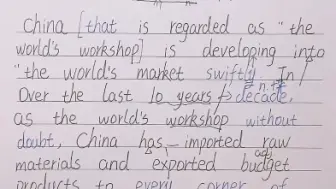 China [that is regarded as "the
world's workshop] is developing into
"the world's market swiftly. In
Over the last 10 years decade,
as the world's workshop without
doubt, China has imported raw
materials and exported budget
products to every corner of